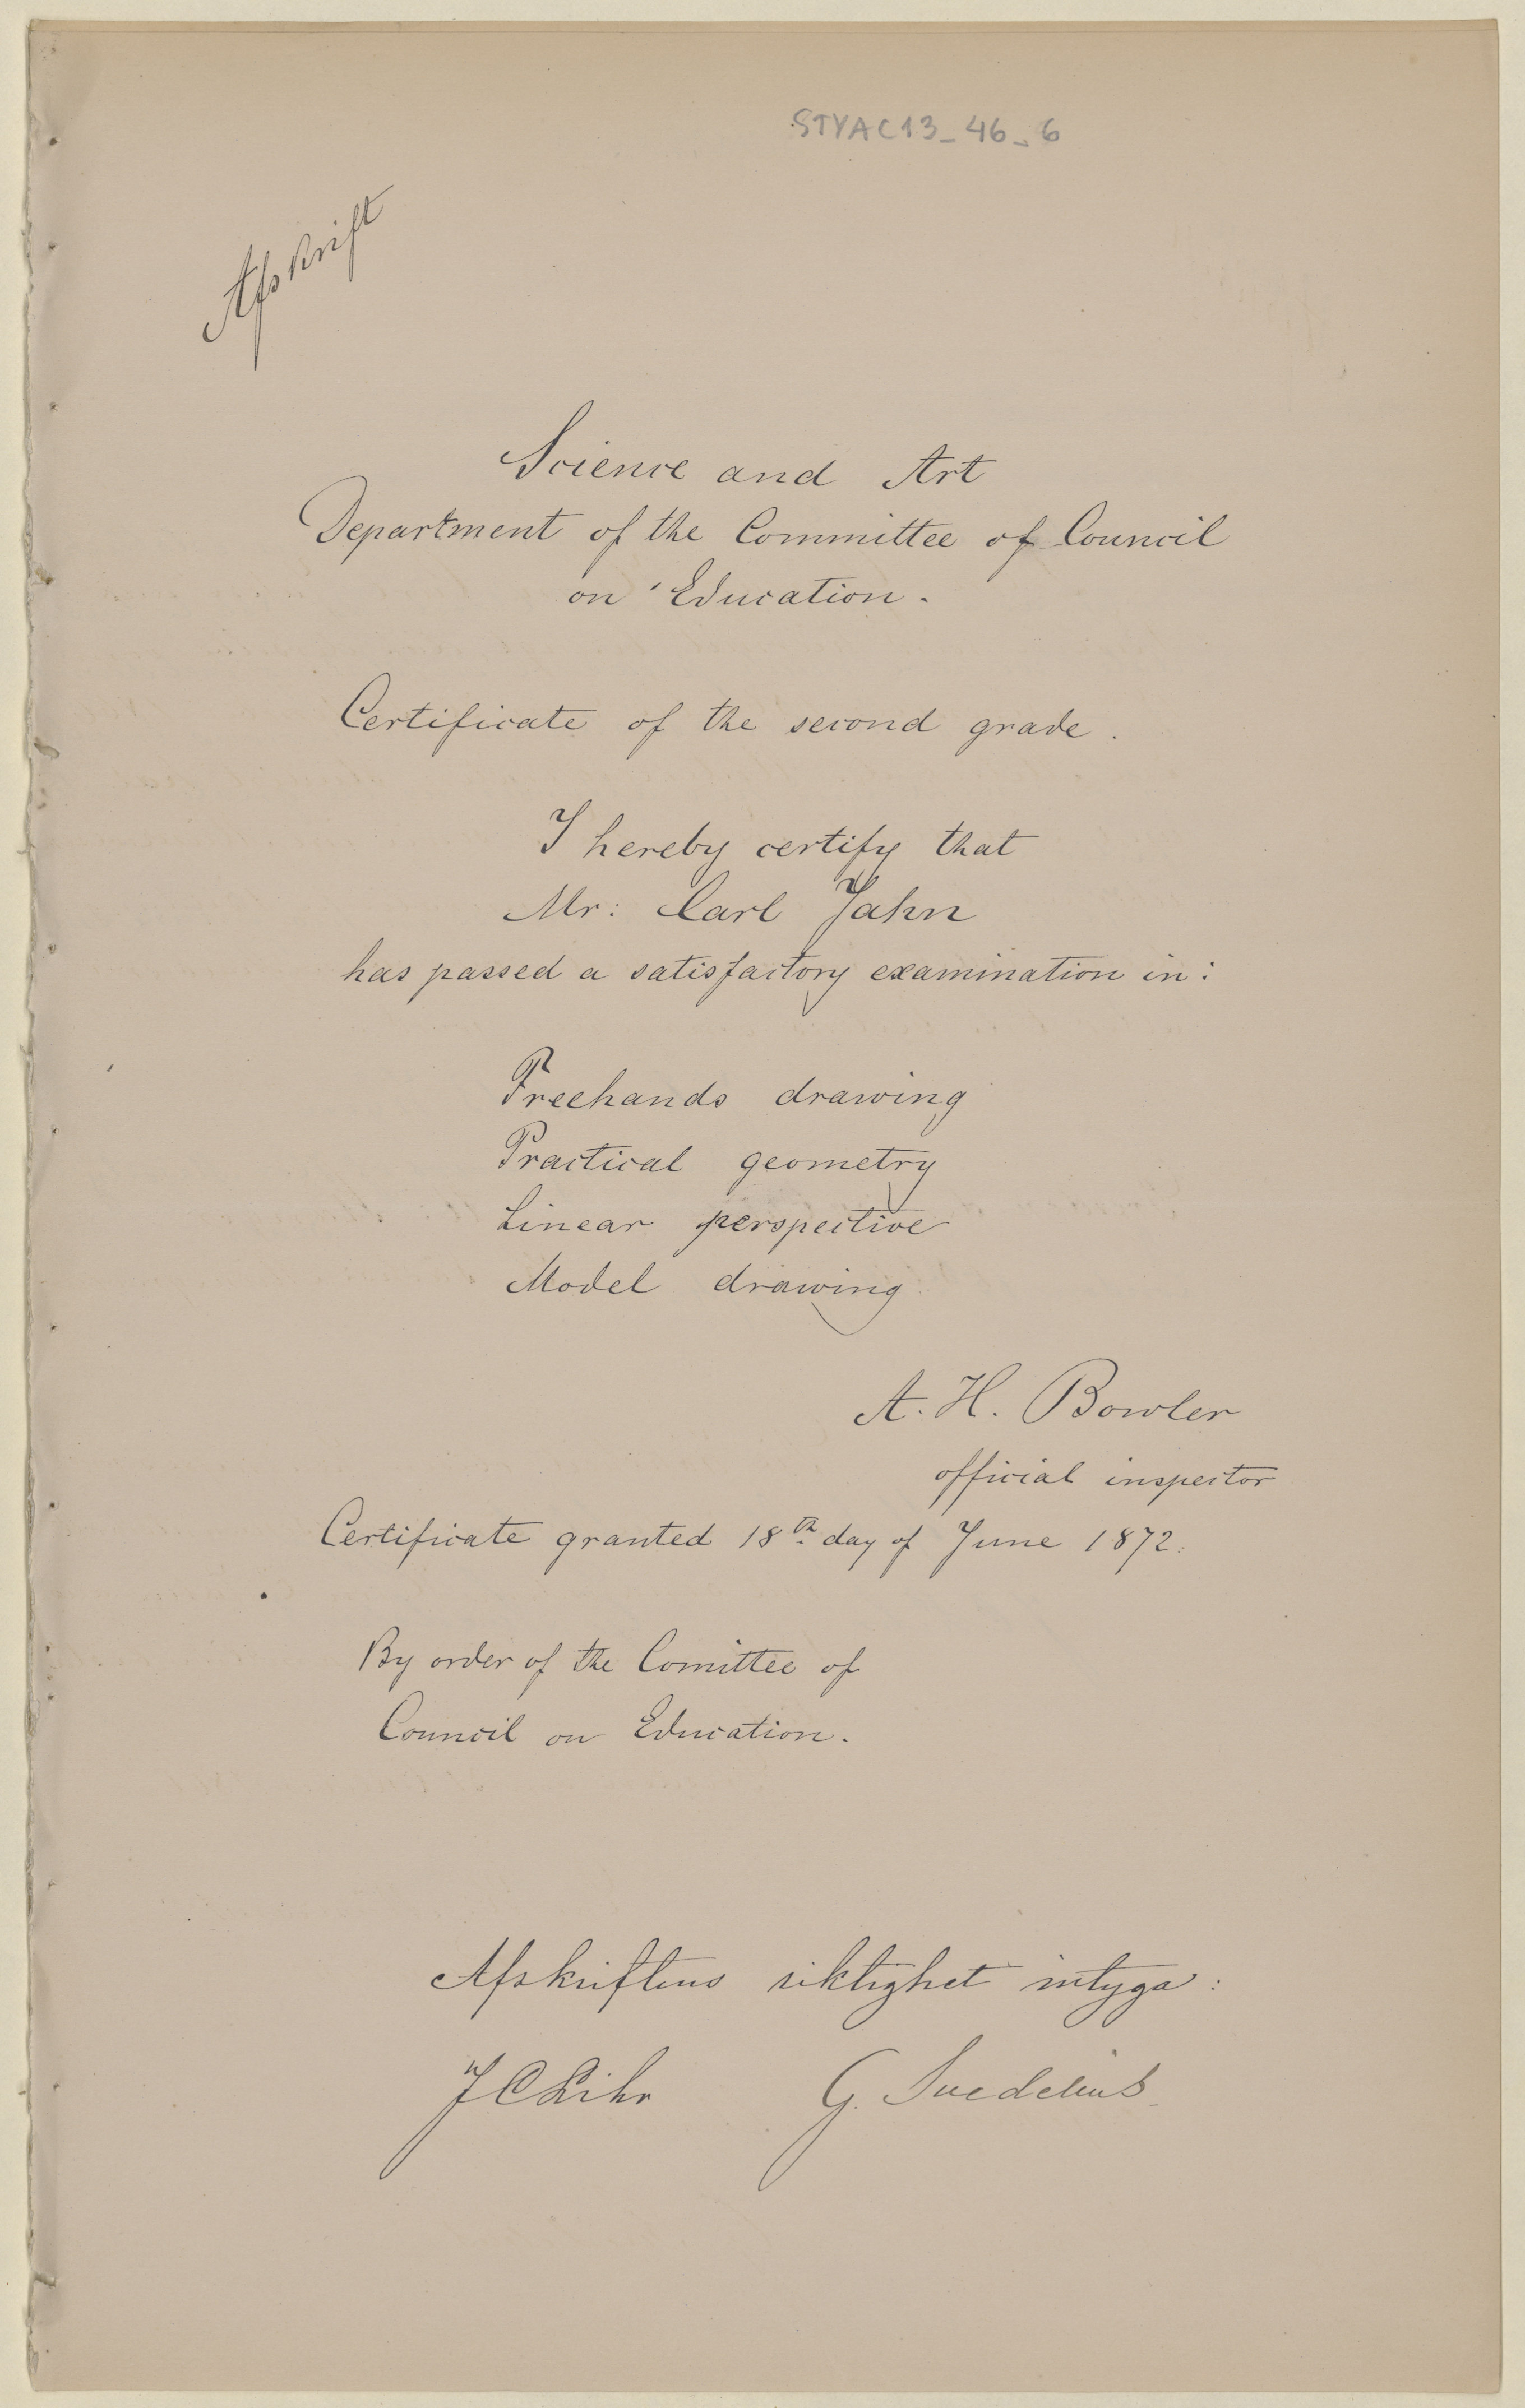 STYAC13_46_6
Afskrift
Science and Art
Department of the Committee of Council
on Education.
Certificate of the second grade.
I hereby certify that
Mr: Carl Jahn
has passed a satisfactory examination in:
Freehands drawing
Practical geometry
Linear perspective
Model drawing
A. H. Bowler
official inspector
Certificate granted 18th day of June 1872.
By order of the Comittee of
Council on Education.
Afskriftens riktighet intyga:
J C
G. Svedelius